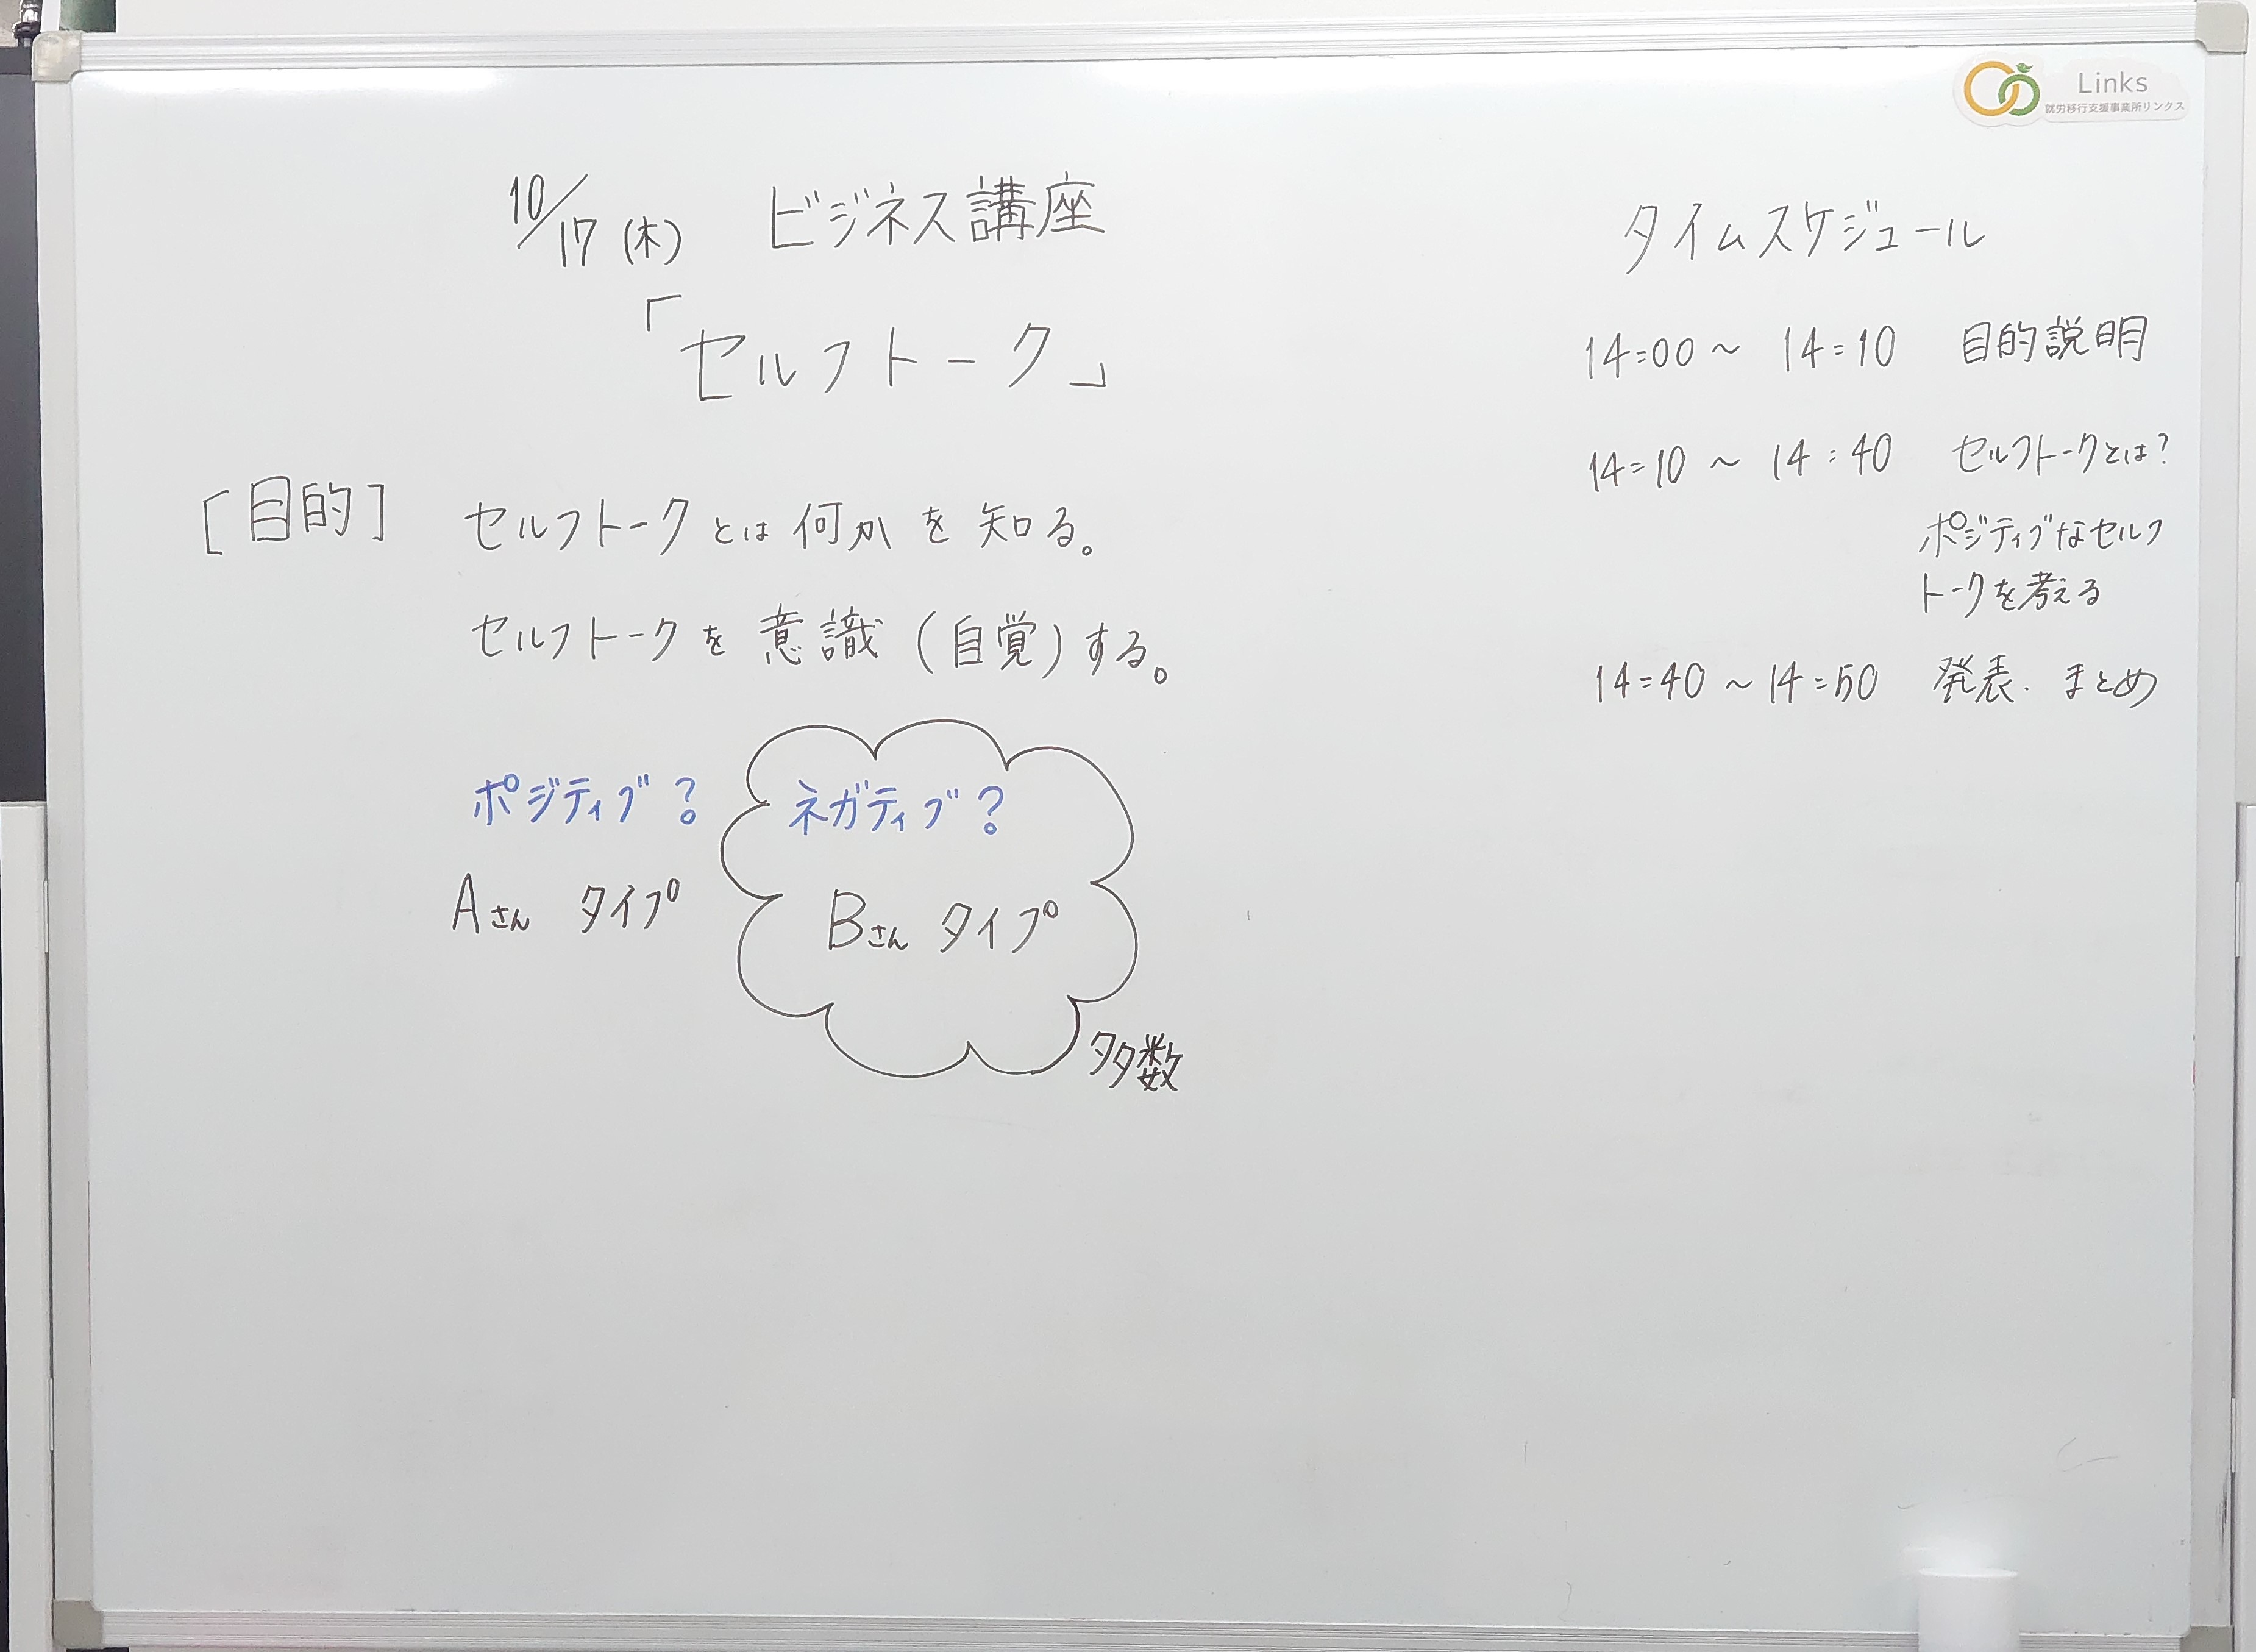 Links
就労移行支援事業所リンクス
10/17(木) ビジネス講座
「セルフトーク」
[目的] セルフトークとは何かを知る。
セルフトークを意識(自覚)する。
ポジティブ? ネガティブ?
Aさん タイプ Bさん タイプ
多数
タイムスケジュール
14:00～14:10 目的説明
14:10～14:40 セルフトークとは?
ポジティブなセルフ
トークを考える
14:40～14:50 発表.まとめ